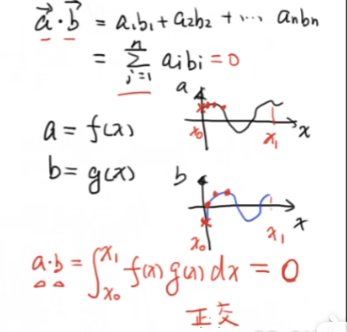 a⃗·b⃗ = a₁b₁ + a₂b₂ + ... aₙbₙ
= ∑ⁿᵢ₌₁ aᵢbᵢ = 0
a
x₀ x₁ x
a = f(x)
b = g(x)
b
x₀ x₁ x
a·b = ∫ₓ₀ˣ¹ f(x) g(x) dx = 0
正交